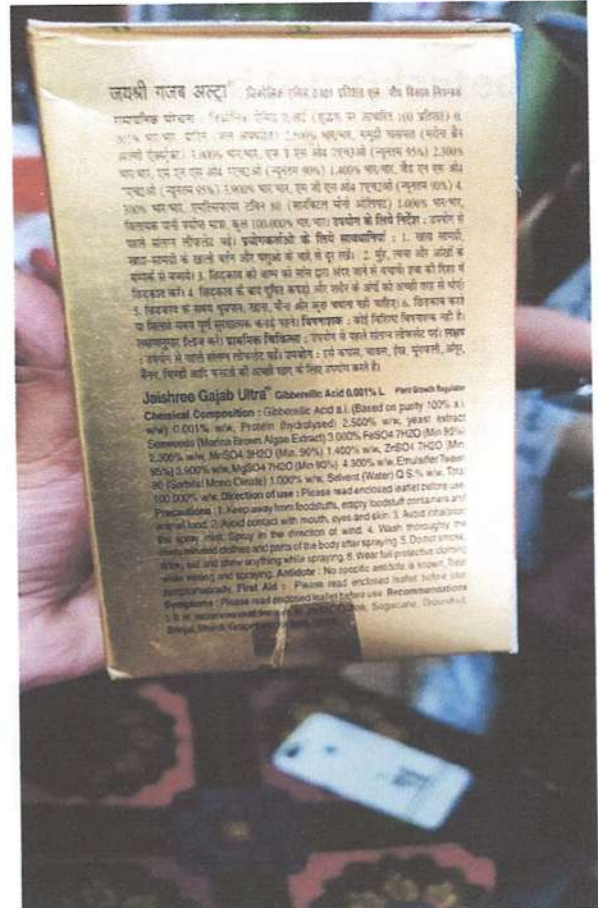 जयश्री गजब अल्ट्रा™ जिब्रेलिक एसिड 0.001 प्रतिशत एल पौध विकास नियन्त्रक
रासायनिक संरचना : जिब्रेलिक ऐसिड ए.आई (शुद्धता पर आधारित 100 प्रतिशत) 0.
001% भार/भार, प्रोटिन 2.500% भार/भार,
3.000% भार/भार, एफ ई एस ओ4 7एच2ओ (न्यूनतम 95%) 2.300%
भार/भार, एम एन एस ओ4 (न्यूनतम 90%) 1.400% भार/भार, जैड एन एस ओ4
7एच2ओ (न्यूनतम 95%) 3.900% भार/भार, एम जी एस ओ4 7एच2ओ (न्यूनतम 90%) 4.
300% भार/भार, 80 1.000% भार/भार,
पानी पर्याप्त मात्रा, कुल 100.000% भार/भार। उपयोग के लिये निर्देश : उपयोग से
पहले संलग्न लीफलेट पढ़ें। प्रयोगकर्ताओं के लिये सावधानियां : 1. खाद्य सामग्री,
खाद्य-सामग्री के खाली बर्तन और पशुओं के चारे से दूर रखें। 2. मुंह, त्वचा और आंखों के
सम्पर्क से बचायें। 3. छिड़काव की वाष्प को सांस द्वारा अंदर जाने से बचायें। हवा की दिशा में
छिड़काव करें। 4. छिड़काव के बाद दूषित कपड़ों और शरीर के अंगों को अच्छी तरह से धोएं।
5. छिड़काव के समय धूम्रपान, खाना, पीना और कुछ चबाना नहीं चाहिए। 6. छिड़काव करते
या मिलाते समय पूर्ण सुरक्षात्मक कपड़े पहनें। विषनाशक : कोई विशिष्ट विषनाशक नहीं है।
लक्षणानुसार ईलाज करें। प्राथमिक चिकित्सा : उपयोग से पहले संलग्न लीफलेट पढ़ें। लक्षण
: उपयोग से पहले संलग्न लीफलेट पढ़ें। उपयोग : इसे कपास, चावल, ईख, मूंगफली, अंगूर,
बैंगन, भिण्डी आदि फसलों की के लिए उपयोग करते हैं।
Jaishree Gajab Ultra™ Gibberellic Acid 0.001% L Plant Growth Regulator
Chemical Composition : Gibberellic Acid a.i. (Based on purity 100% a.i.
w/w) 0.001% w/w, Protein (hydrolysed) 2.500% w/w, yeast extract
Seaweeds (Marina Brown Algae Extract) 3.000% FeSO4 7H2O (Min 95%)
2.300% w/w, MnSO4 3H2O (Min. 90%) 1.400% w/w, ZnSO4 7H2O (Min
95%) 3.900% w/w, MgSO4 7H2O (Min 90%) 4.300% w/w, Emulsifier Tween
80 (Sorbital Mono Oleate) 1.000% w/w, Solvent (Water) Q.S.% w/w, Total
100.000% w/w. Direction of use : Please read enclosed leaflet before use.
Precautions : 1. Keep away from foodstuffs, empty foodstuff containers and
animal food. 2. Avoid contact with mouth, eyes and skin. 3. Avoid inhalation
the spray mist. Spray in the direction of wind. 4. Wash thoroughly the
contaminated clothes and parts of the body after spraying. 5. Do not smoke,
drink, eat and chew anything while spraying. 6. Wear full protective clothing
while mixing and spraying. Antidote : No specific antidote is known. Treat
symptomatically. First Aid : Please read enclosed leaflet before use.
Symptoms : Please read enclosed leaflet before use. Recommendations
: It is recommended Sugarcane, Groundnut,
Brinjal, Bhindi, Grapes